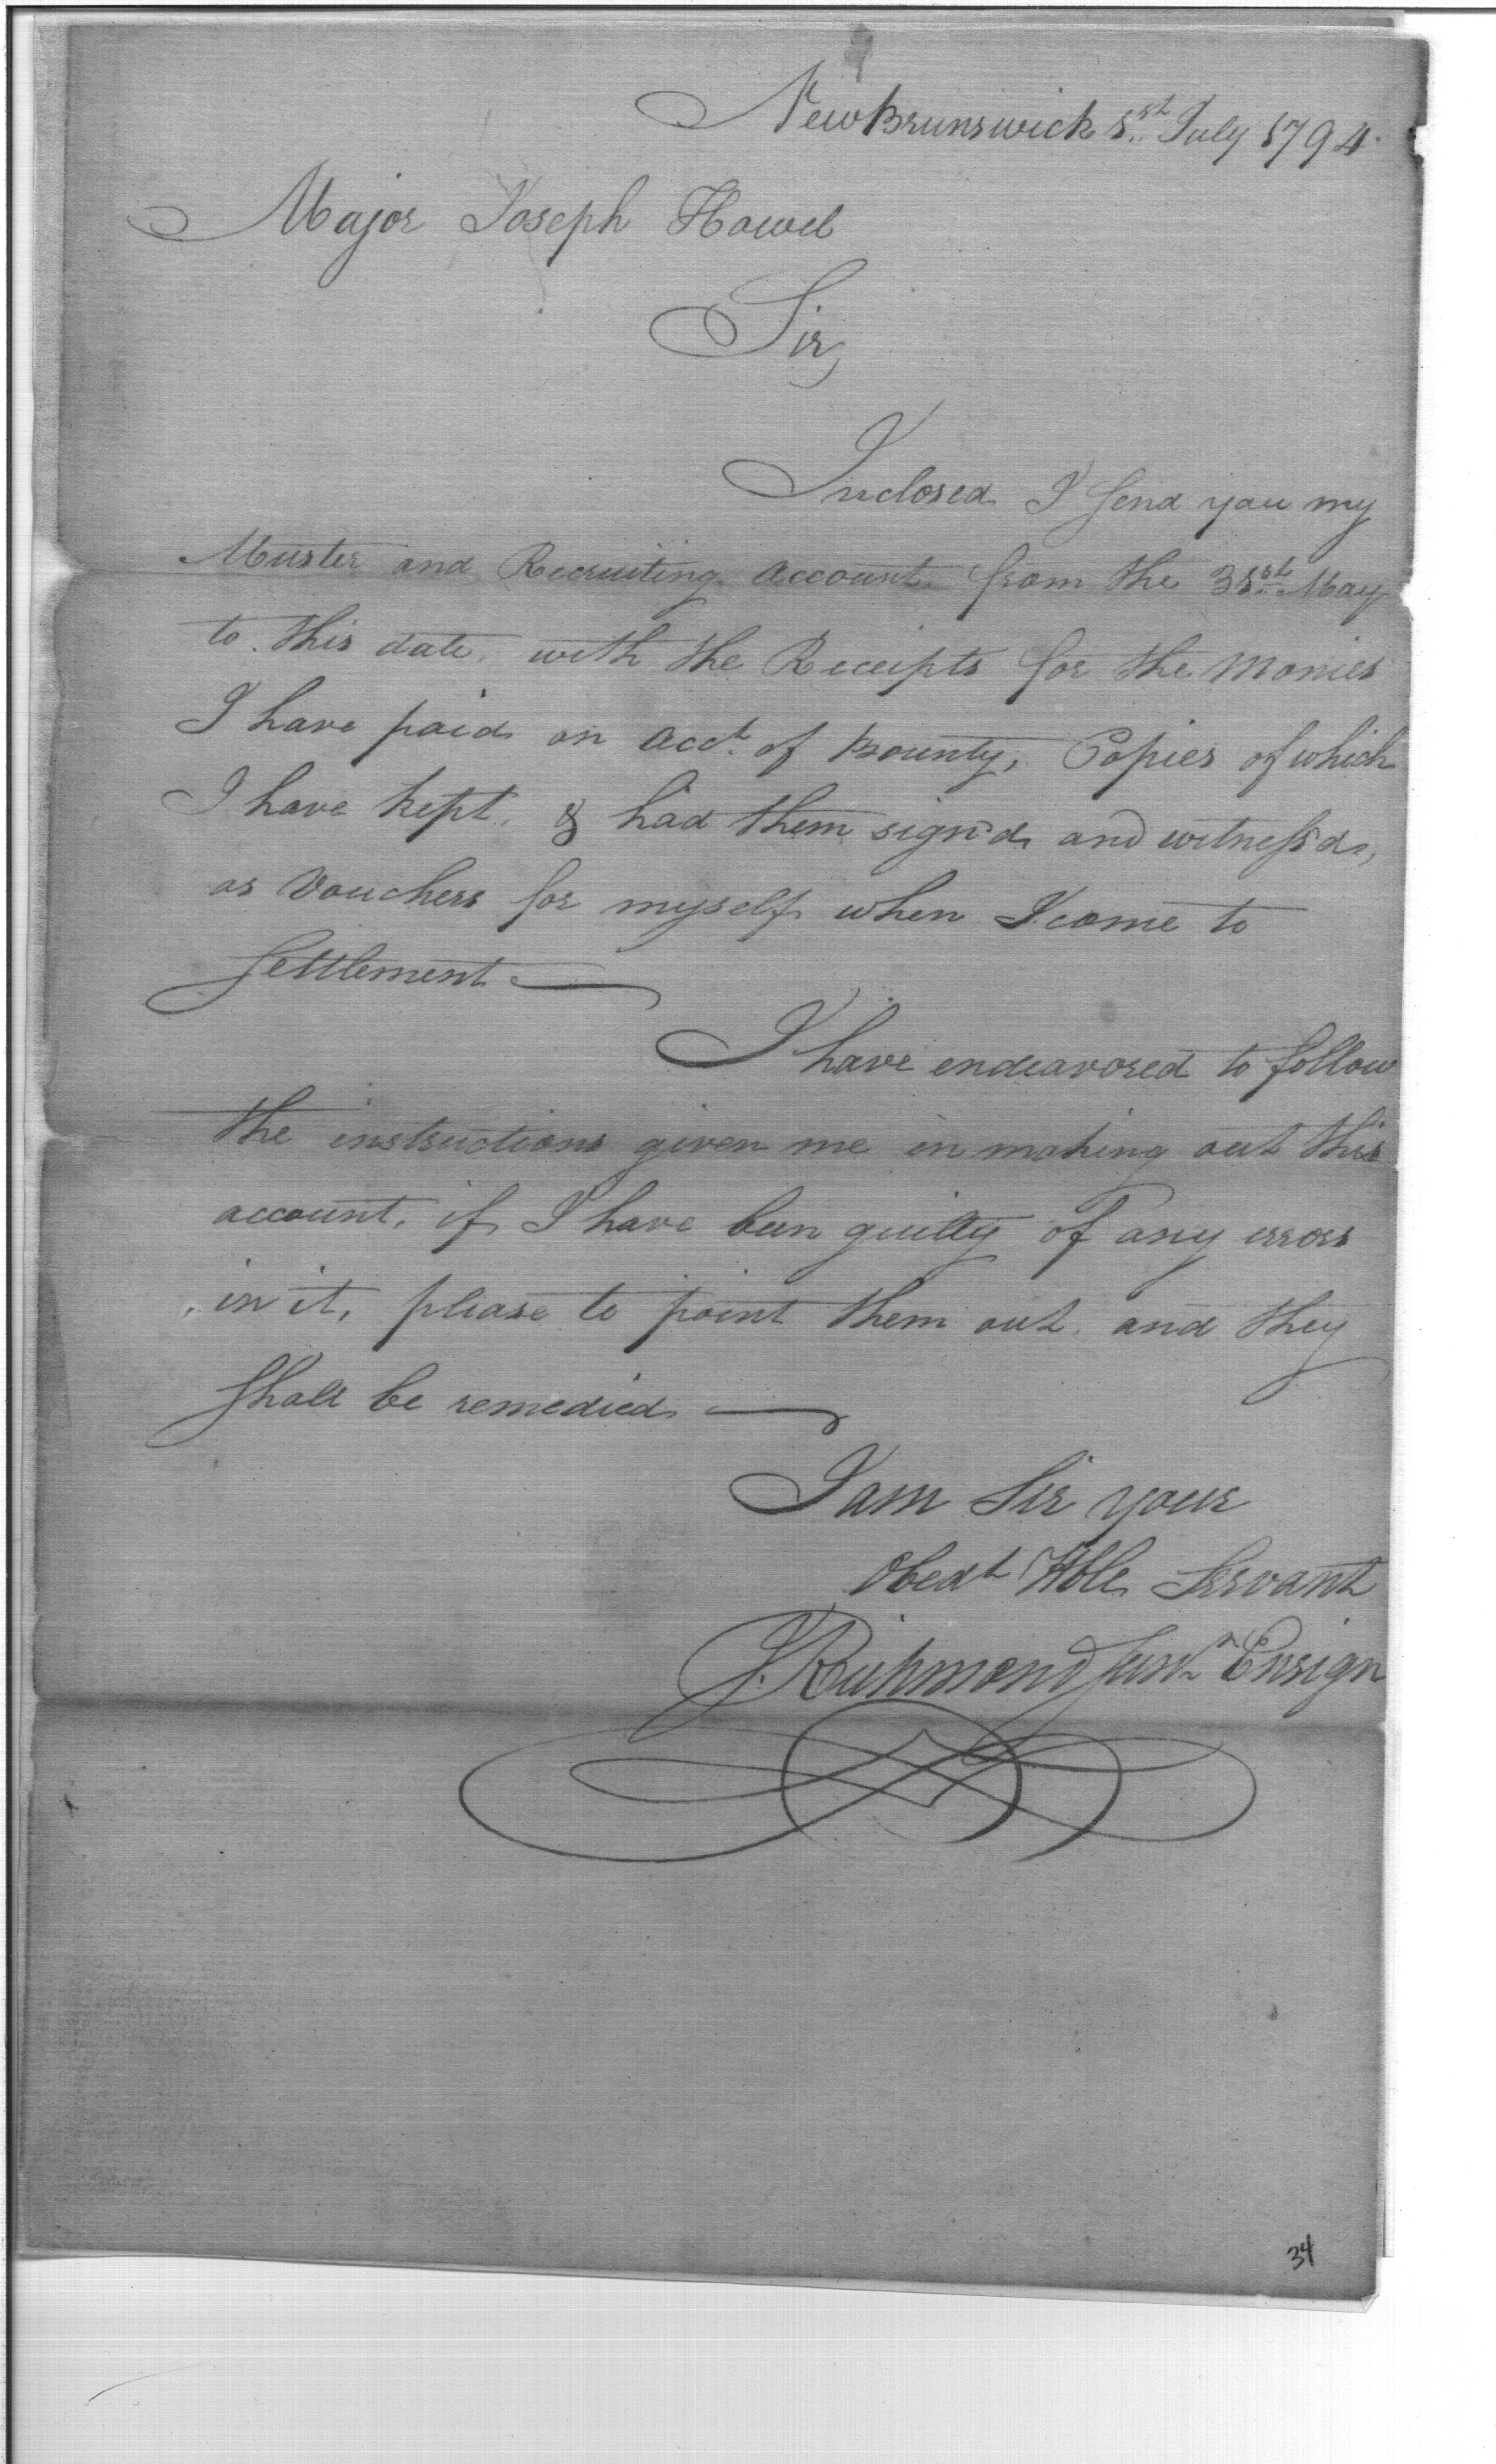 New Brunswick 1st July 1794.
Major Joseph Howel
Sir,
Inclosed I send you my
Muster and Recruiting Account from the 31st May
to this date, with the Receipts for the Monies
I have paid on Acct. of Bounty, Copies of which
I have kept, & had them sign'd and witness'd,
as Vouchers for myself when I come to
settlement
I have endeavored to follow
the instructions given me in making out this
account, if I have been guilty of any errors
in it, please to point them out, and they
shall be remedied
I am Sir your
Obedt Hble Servant
J. Richmond Junr Ensign
34